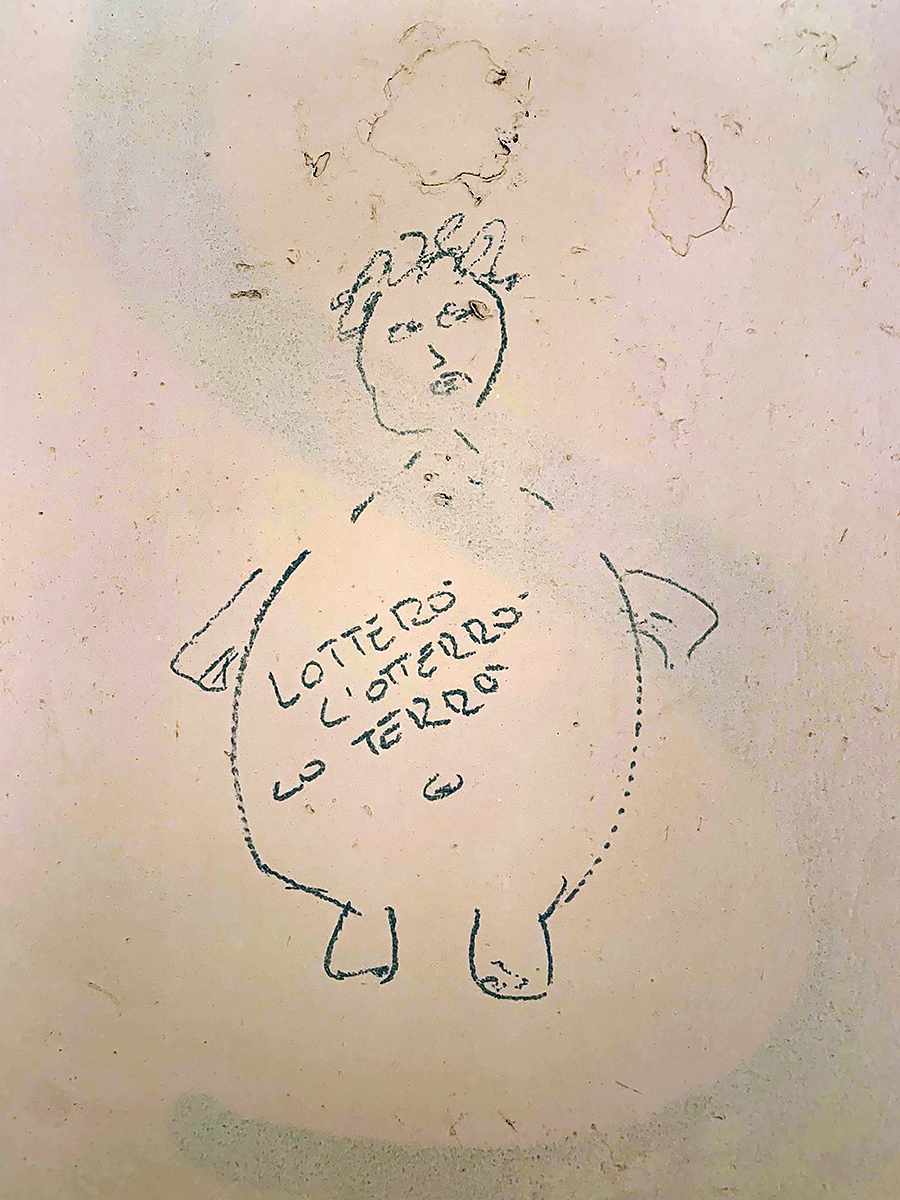 LOTTERÒ
L'OTTERRÒ
LO TERRÒ